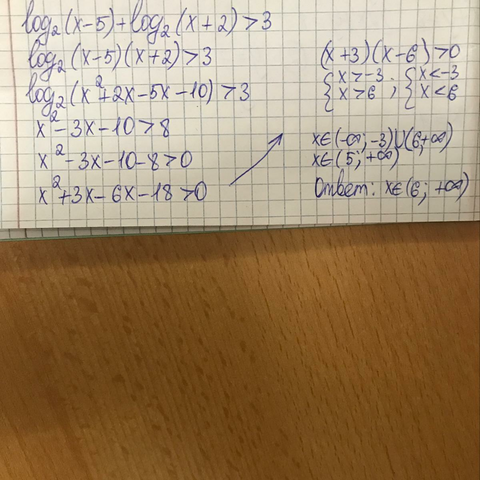 log₂(x-5)+log₂(x+2)>3
log₂(x-5)(x+2)>3
log₂(x²+2x-5x-10)>3
x²-3x-10>8
x²-3x-10-8>0
x²+3x-6x-18>0
(x+3)(x-6)>0
{x>-3 ; {x<-3
{x>6 ; {x<6
x∈(-∞;-3)∪(6;+∞)
x∈(5;+∞)
Ответ: x∈(6;+∞)